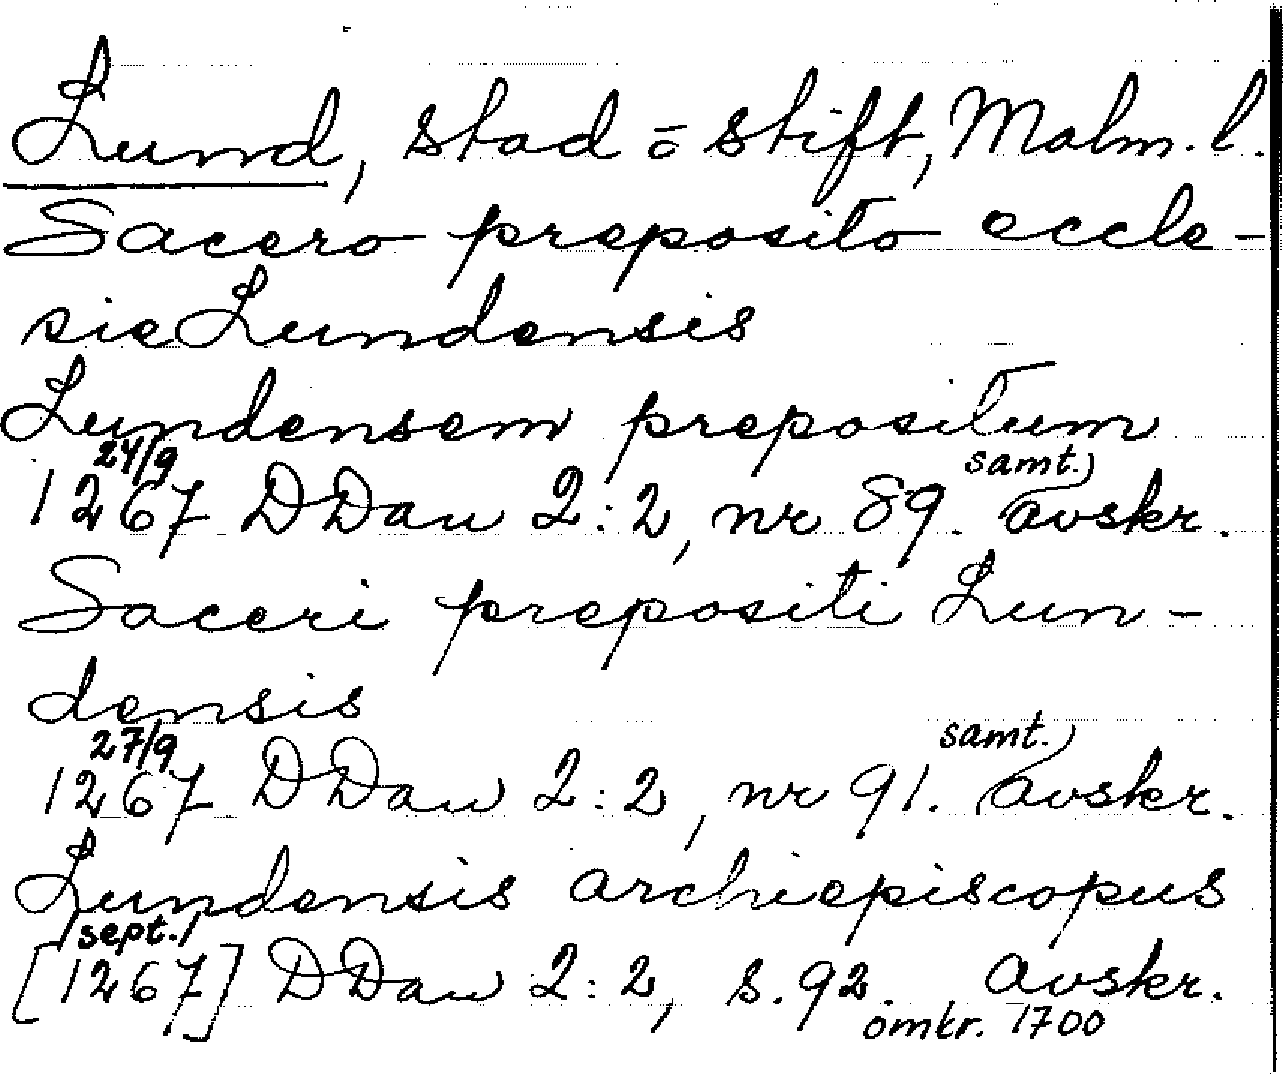 Lund, stad o stift, Malm. l.
Sacero preposito eccle-
sie Lundensis
Lundensem prepositum
24/9 samt.)
1267 DDan 2:2, nr 89. avskr.
Saceri prepositi Lun-
densis
27/9 samt.)
1267 DDan 2:2, nr 91. avskr.
Lundensis archiepiscopus
/sept./
[1267] DDan 2:2, s. 92. avskr.
omkr. 1700